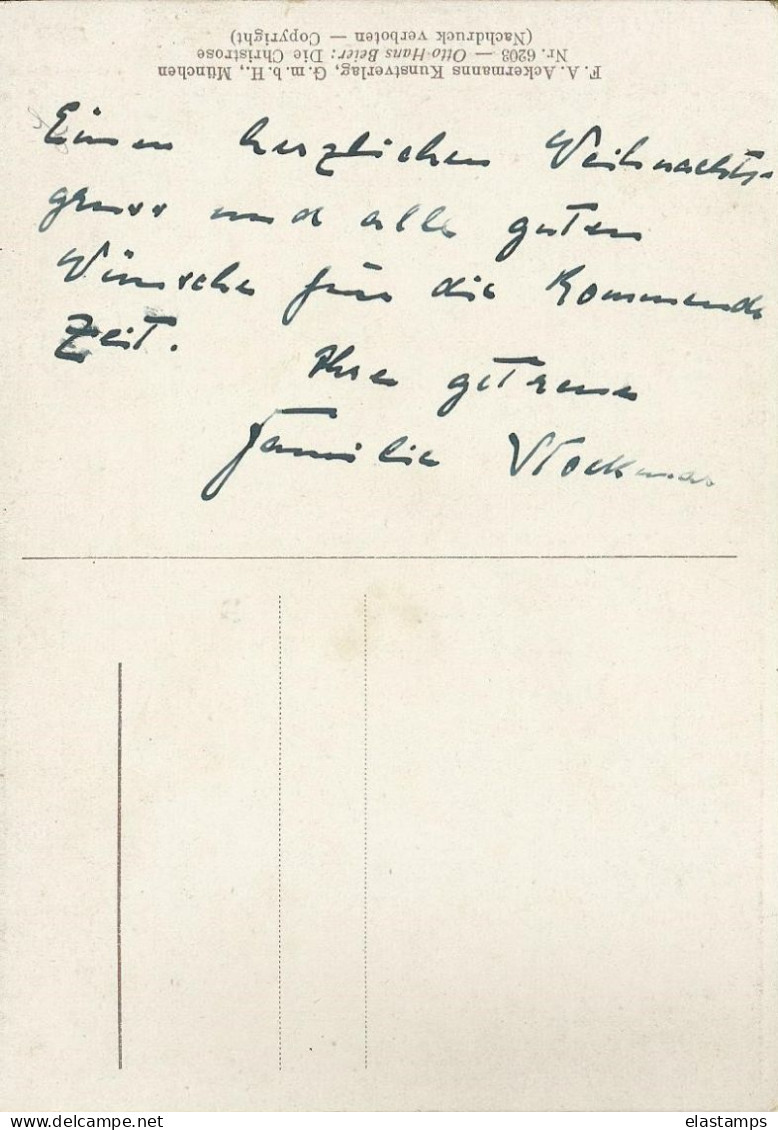 F. A. Ackermanns Kunstverlag, G. m. b. H., München
Nr. 6203 — Otto Hans Beier: Die Christrose
(Nachdruck verboten — Copyright)
Einen herzlichen Weihnachts-
gruss und alle guten
Wünsche für die kommende
Zeit.
Ihre getreue
Familie
elastamps